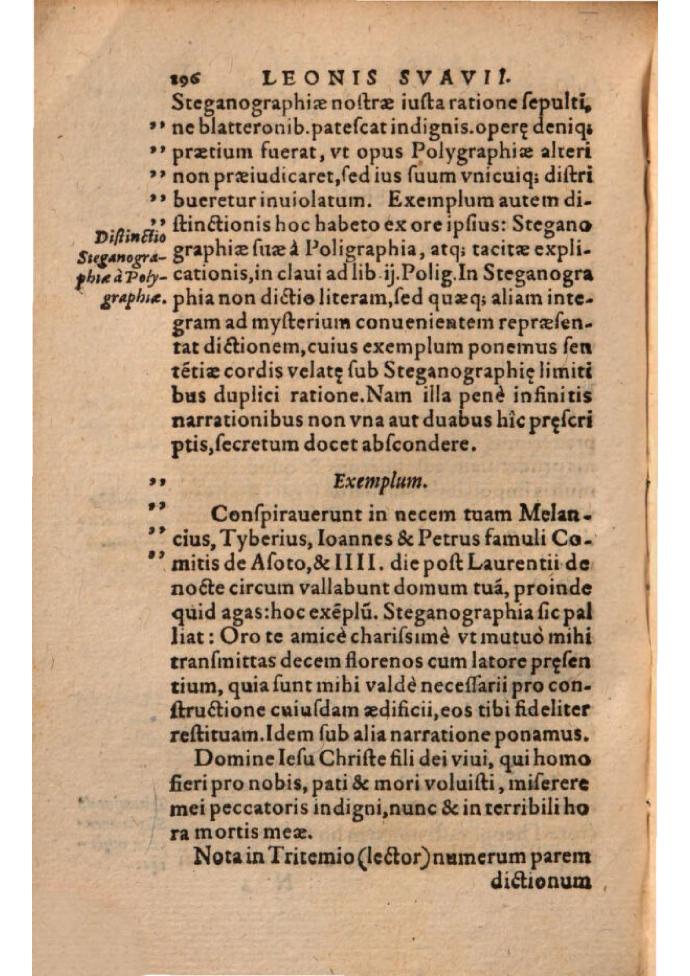 296 LEONIS SVAVII.
Steganographiæ noſtræ iuſta ratione ſepulti,
” ne blatteronib.pateſcat indignis.operę deniq;
” prætium fuerat, vt opus Polygraphiæ alteri
” non præiudicaret,ſed ius ſuum vnicuiq; diſtri
” bueretur inuiolatum. Exemplum autem di-
” ſtinctionis hoc habeto ex ore ipſius: Stegano
Diſtinctio
Steganogra-
phiæ à Poly-
graphiæ.
graphiæ ſuæ à Poligraphia, atq; tacitæ expli-
cationis,in claui ad lib.ij.Polig.In Steganogra
phia non dictio literam,ſed quæq; aliam inte-
gram ad myſterium conuenientem repræſen-
tat dictionem,cuius exemplum ponemus ſen
tẽtiæ cordis velatę ſub Steganographię limiti
bus duplici ratione.Nam illa penè infinitis
narrationibus non vna aut duabus hîc pręſcri
ptis,ſecretum docet abſcondere.
” Exemplum.
” Conſpirauerunt in necem tuam Melan-
” cius, Tyberius, Ioannes & Petrus famuli Co-
” mitis de Aſoto,& IIII. die poſt Laurentii de
nocte circum vallabunt domum tuá, proinde
quid agas:hoc exẽplũ. Steganographia ſic pal
liat : Oro te amicè chariſsimè vt mutuò mihi
tranſmittas decem florenos cum latore pręſen
tium, quia ſunt mihi valdè neceſſarii pro con-
ſtructione cuiuſdam ædificii,eos tibi fideliter
reſtituam.Idem ſub alia narratione ponamus.
Domine Ieſu Chriſte fili dei viui, qui homo
fieri pro nobis, pati & mori voluiſti, miſerere
mei peccatoris indigni,nunc & in terribili ho
ra mortis meæ.
Nota in Tritemio (lector) numerum parem
dictionum